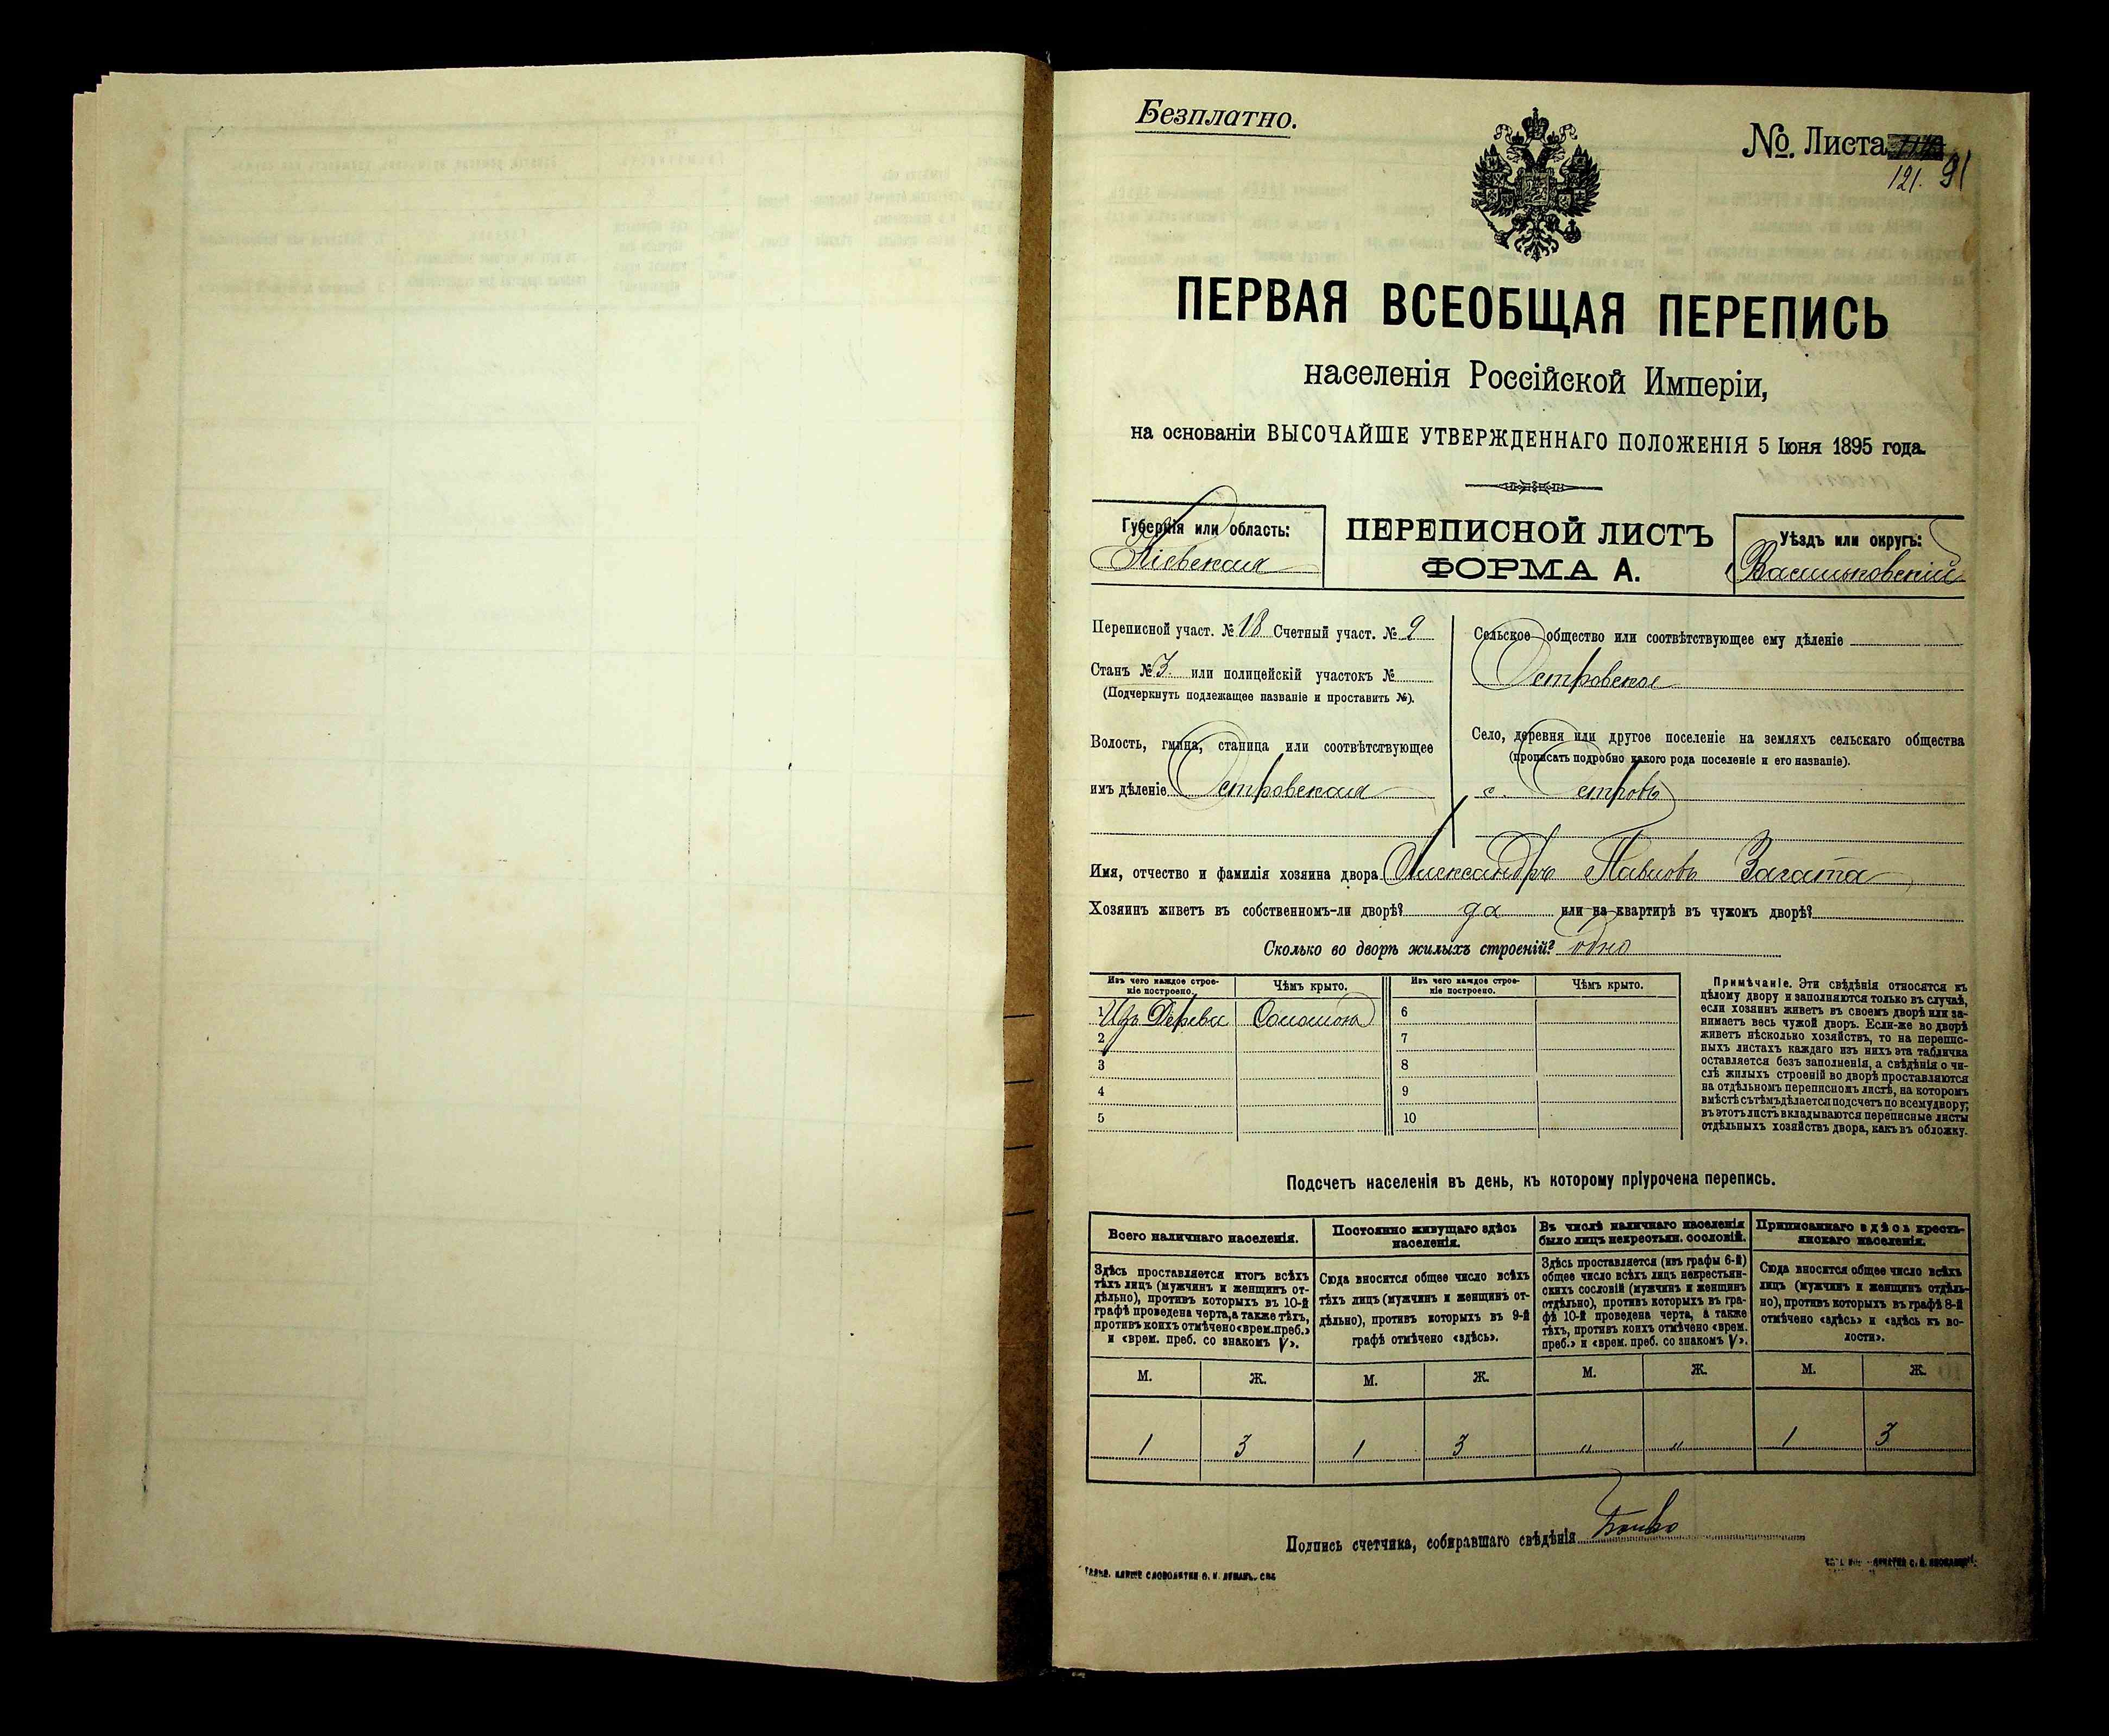 Безплатно.
№. Листа
121. 91
ПЕРВАЯ ВСЕОБЩАЯ ПЕРЕПИСЬ
населенія Россійской Имперіи,
на основаніи ВЫСОЧАЙШЕ УТВЕРЖДЕННАГО ПОЛОЖЕНІЯ 5 Іюня 1895 года.
Губернія или область:
Кіевская
ПЕРЕПИСНОЙ ЛИСТЪ
ФОРМА А.
Уѣздъ или округъ:
Васильковскій
Переписной участ. № 18 Счетный участ. № 9
Станъ № 3. или полицейскій участокъ №
(Подчеркнуть подлежащее названіе и проставить №).
Волость, гмина, станица или соотвѣтствующее
имъ дѣленіе Островская
Сельское общество или соотвѣтствующее ему дѣленіе
Островское
Село, деревня или другое поселеніе на земляхъ сельскаго общества
(прописать подробно какого рода поселеніе и его названіе).
с. Островъ
Имя, отчество и фамилія хозяина двора Александръ Павловъ Загата
Хозяинъ живетъ въ собственномъ-ли дворѣ? да или на квартирѣ въ чужомъ дворѣ?
Сколько во дворѣ жилыхъ строеній? одно
Изъ чего каждое строе-
ніе построено.
Чѣмъ крыто.
Изъ чего каждое строе-
ніе построено.
Чѣмъ крыто.
1 Изъ Дерева Соломою 6
2 7
3 8
4 9
5 10
Примѣчаніе. Эти свѣдѣнія относятся къ
цѣлому двору и заполняются только въ случаѣ,
если хозяинъ живетъ въ своемъ дворѣ или за-
нимаетъ весь чужой дворъ. Если-же во дворѣ
живетъ нѣсколько хозяйствъ, то на перепис-
ныхъ листахъ каждаго изъ нихъ эта табличка
оставляется безъ заполненія, а свѣдѣнія о чи-
слѣ жилыхъ строеній во дворѣ проставляются
на отдѣльномъ переписномъ листѣ, на которомъ
вмѣстѣ съ тѣмъ дѣлается подсчетъ по всему двору;
въ этотъ листъ вкладываются переписные листы
отдѣльныхъ хозяйствъ двора, какъ въ обложку.
Подсчетъ населенія въ день, къ которому пріурочена перепись.
Всего наличнаго населенія.
Здѣсь проставляется итогъ всѣхъ
тѣхъ лицъ (мужчинъ и женщинъ от-
дѣльно), противъ которыхъ въ 10-й
графѣ проведена черта, а также тѣхъ,
противъ коихъ отмѣчено «врем. преб.»
и «врем. преб. со знакомъ V».
Постоянно живущаго здѣсь
населенія.
Сюда вносится общее число всѣхъ
тѣхъ лицъ (мужчинъ и женщинъ от-
дѣльно), противъ которыхъ въ 9-й
графѣ отмѣчено «здѣсь».
Въ числѣ наличнаго населенія
было лицъ некрестьян. сословій.
Здѣсь проставляется (изъ графы 6-й)
общее число всѣхъ лицъ некрестьян-
скихъ сословій (мужчинъ и женщинъ
отдѣльно), противъ которыхъ въ гра-
фѣ 10-й проведена черта, а также
тѣхъ, противъ коихъ отмѣчено «врем.
преб.» и «врем. преб. со знакомъ V».
Приписаннаго здѣсь кресть-
янскаго населенія.
Сюда вносится общее число всѣхъ
лицъ (мужчинъ и женщинъ отдѣль-
но), противъ которыхъ въ графѣ 8-й
отмѣчено «здѣсь» и «здѣсь къ во-
лости».
М. Ж. М. Ж. М. Ж. М. Ж.
1 3 1 3 " " 1 3
Подпись счетчика, собиравшаго свѣдѣнія